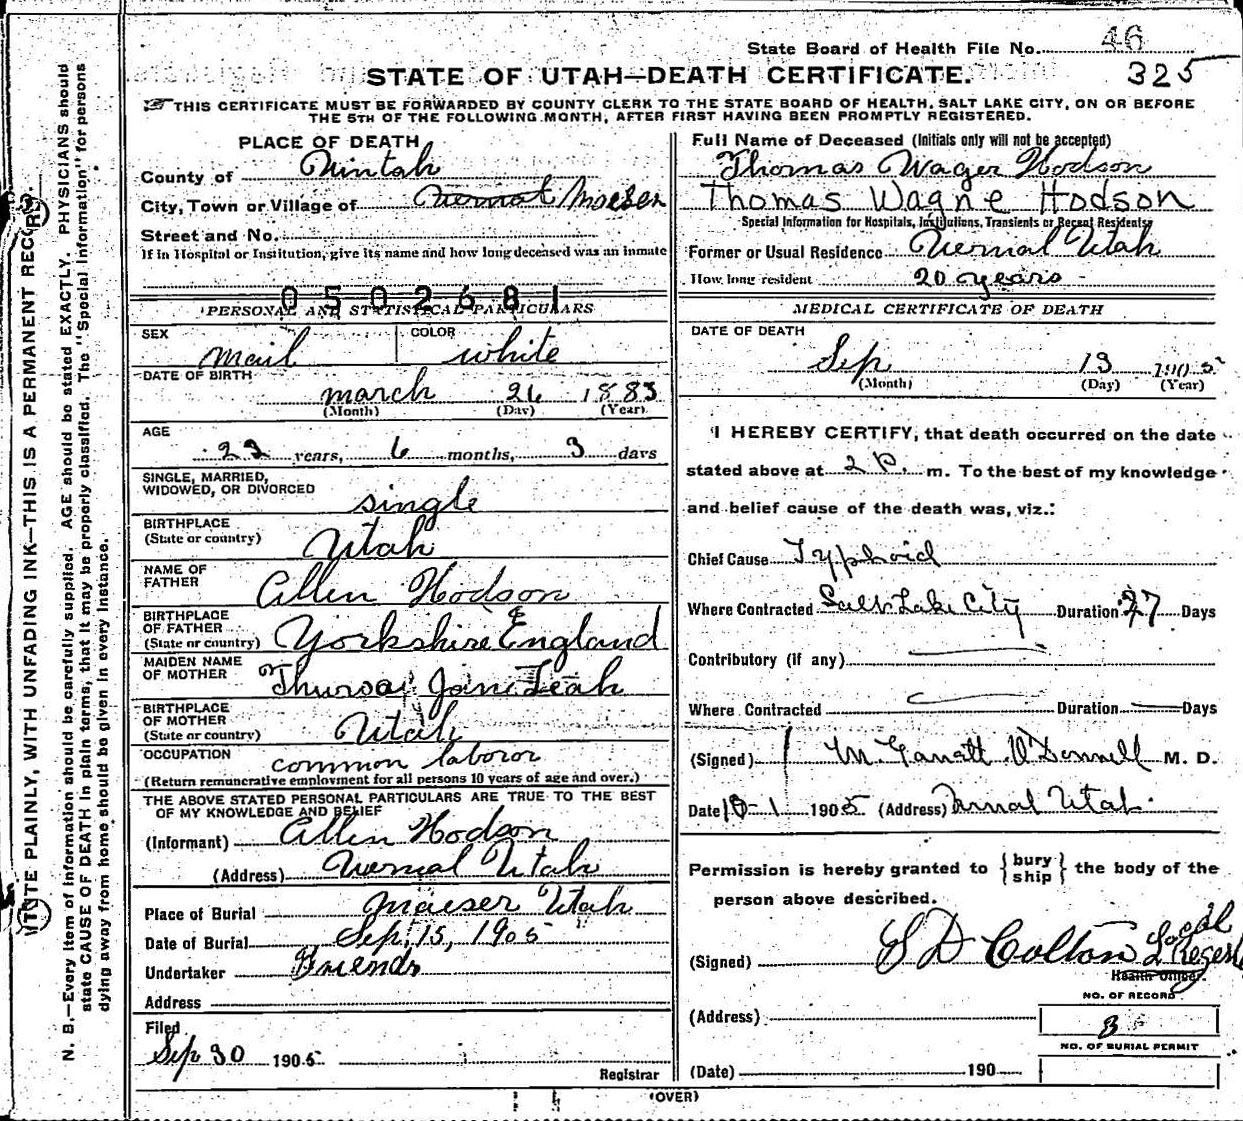 State Board of Health File No. 46
325
STATE OF UTAH—DEATH CERTIFICATE.
THIS CERTIFICATE MUST BE FORWARDED BY COUNTY CLERK TO THE STATE BOARD OF HEALTH, SALT LAKE CITY, ON OR BEFORE
THE 5TH OF THE FOLLOWING MONTH, AFTER FIRST HAVING BEEN PROMPTLY REGISTERED.
WRITE PLAINLY, WITH UNFADING INK—THIS IS A PERMANENT RECORD.
N. B.—Every item of information should be carefully supplied. AGE should be stated EXACTLY. PHYSICIANS should
state CAUSE OF DEATH in plain terms, that it may be properly classified. The "Special Information" for persons
dying away from home should be given in every instance.
PLACE OF DEATH
County of Uintah
City, Town or Village of Vernal Maeser
Street and No.
If in Hospital or Institution, give its name and how long deceased was an inmate
0502681
PERSONAL AND STATISTICAL PARTICULARS
SEX mail COLOR white
DATE OF BIRTH march 26 1883
(Month) (Day) (Year)
AGE
22 years, 6 months, 3 days
SINGLE, MARRIED,
WIDOWED, OR DIVORCED single
BIRTHPLACE
(State or country) Utah
NAME OF
FATHER Allen Hodson
BIRTHPLACE
OF FATHER
(State or country) Yorkshire England
MAIDEN NAME
OF MOTHER Jane Leah
BIRTHPLACE
OF MOTHER
(State or country) Utah
OCCUPATION common laboror
(Return remunerative employment for all persons 10 years of age and over.)
THE ABOVE STATED PERSONAL PARTICULARS ARE TRUE TO THE BEST
OF MY KNOWLEDGE AND BELIEF
(Informant) Allen Hodson
(Address) Vernal Utah
Place of Burial Maeser Utah
Date of Burial Sep, 15, 1905
Undertaker Friends
Address
Filed
Sep 30 1905
Registrar
Full Name of Deceased (Initials only will not be accepted)
Thomas Wager Hodson
Thomas Wagne Hodson
Special Information for Hospitals, Institutions, Transients or Recent Residents
Former or Usual Residence Vernal Utah
How long resident 20 years
MEDICAL CERTIFICATE OF DEATH
DATE OF DEATH
Sep 13 1905
(Month) (Day) (Year)
I HEREBY CERTIFY, that death occurred on the date
stated above at 2 P. m. To the best of my knowledge
and belief cause of the death was, viz.:
Chief Cause Typhoid
Where Contracted Salt Lake City Duration 27 Days
Contributory (if any)
Where Contracted Duration Days
(Signed) M. Garrett O'Donnell M. D.
Date 10-1 1905 (Address) Vernal Utah
Permission is hereby granted to { bury ship } the body of the
person above described.
(Signed) S D Colton Local Regest
Health Officer.
NO. OF RECORD
(Address) 3
NO. OF BURIAL PERMIT
(Date) 190
(OVER)